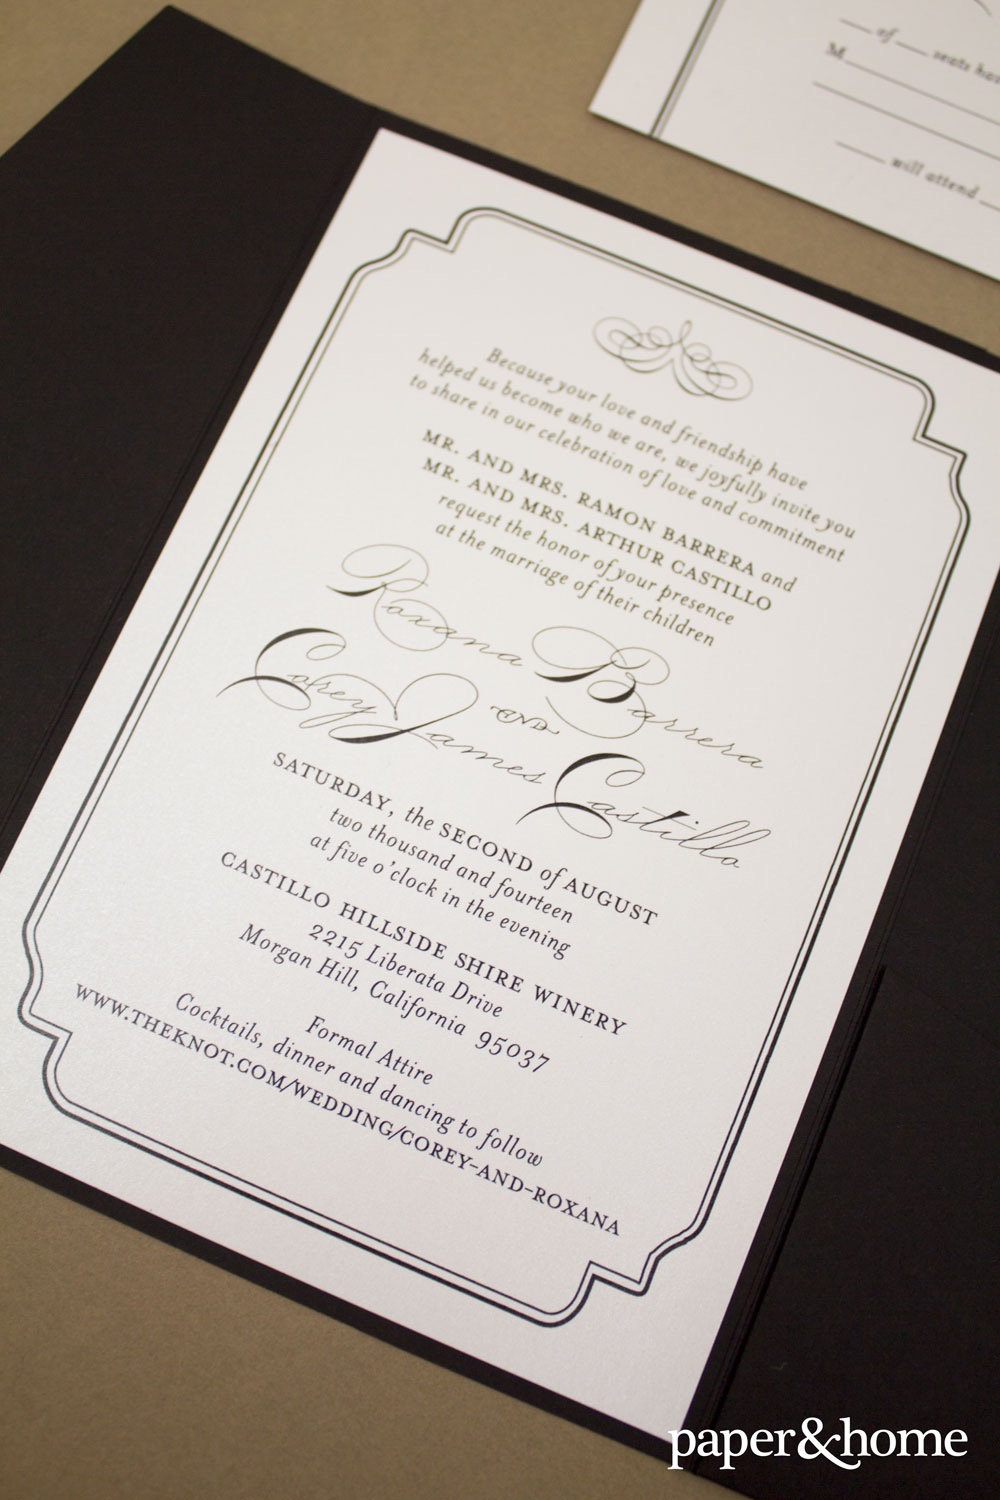 Because your love and friendship have
helped us become who we are, we joyfully invite you
to share in our celebration of love and commitment
MR. AND MRS. RAMON BARRERA and
MR. AND MRS. ARTHUR CASTILLO
request the honor of your presence
at the marriage of their children
Roxana Barrera
AND
Corey James Castillo
SATURDAY, the SECOND of AUGUST
two thousand and fourteen
at five o'clock in the evening
CASTILLO HILLSIDE SHIRE WINERY
2215 Liberata Drive
Morgan Hill, California 95037
Formal Attire
Cocktails, dinner and dancing to follow
WWW.THEKNOT.COM/WEDDING/COREY-AND-ROXANA
___ of ___ seats hav
M
___ will attend ___
paper&home